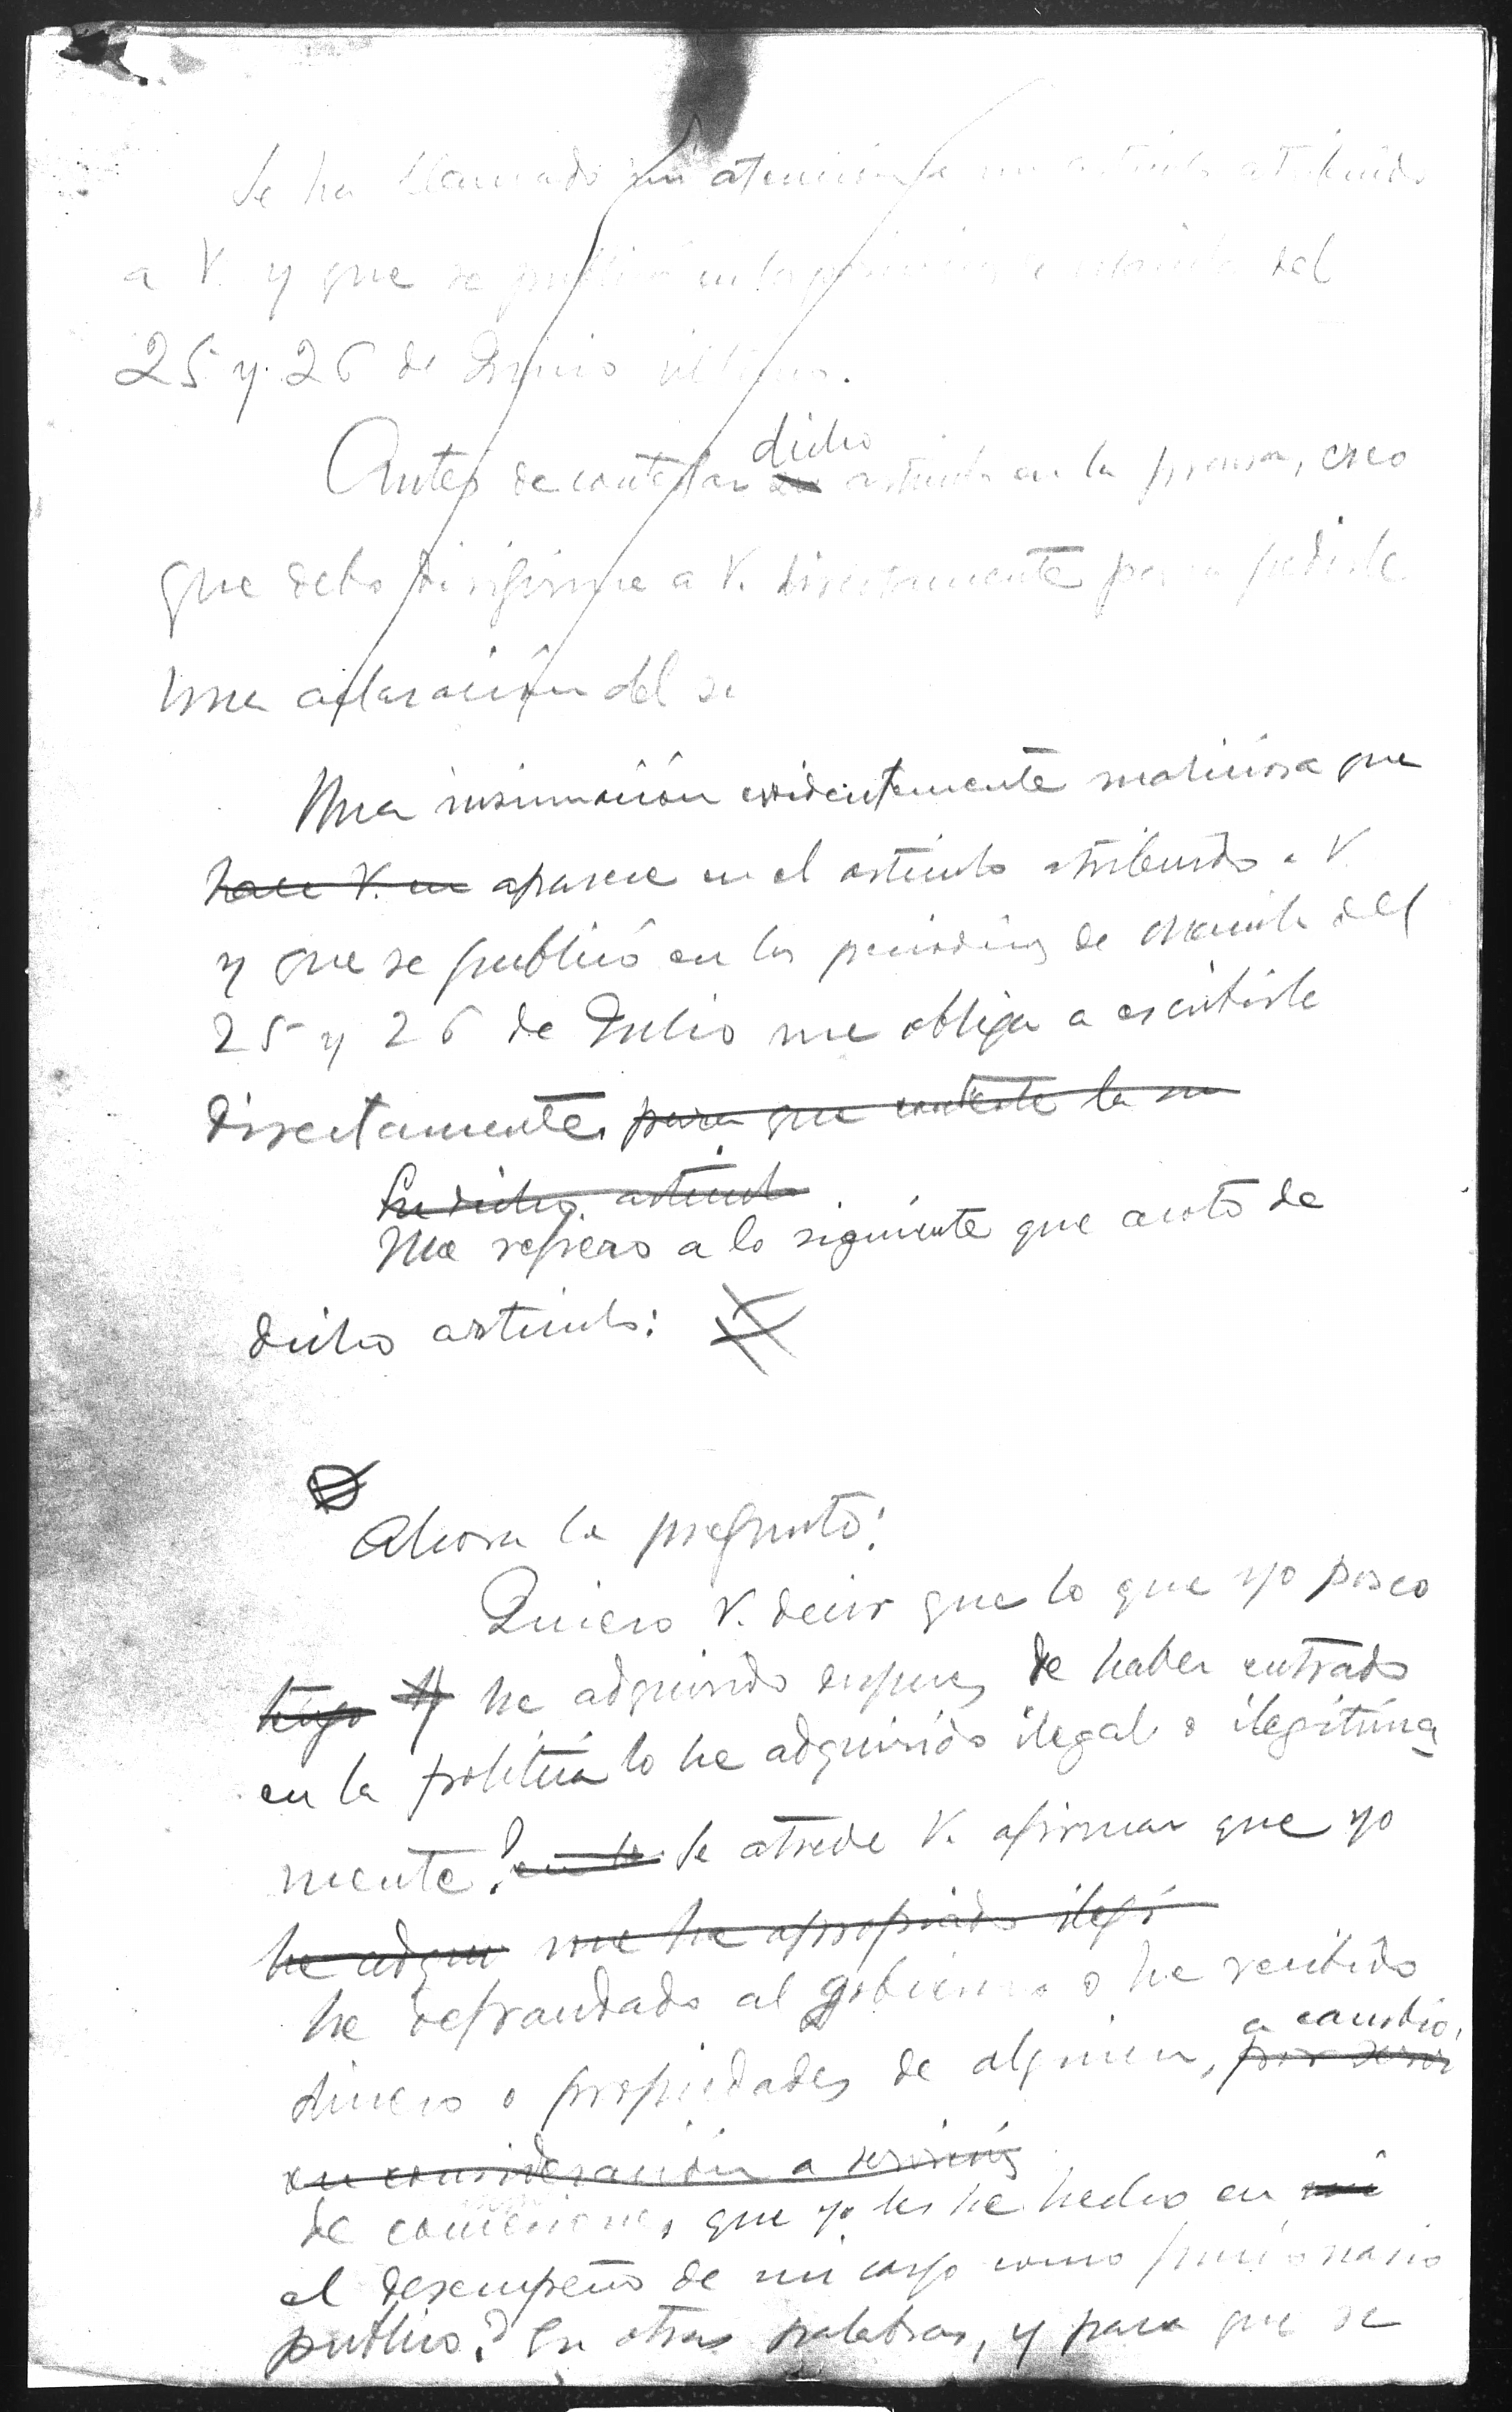 Se ha llamado mi atención a un articulo atribuido
a V. y que se publicó en los periodicos de Manila del
25 y 26 de Junio ultimo.
dicho
Antes de contestar su articulo en la prensa, creo
que debo dirigirme a V. directamente para pedirle
una aclaración del
Una insinuación evidentemente maliciosa que
hace V. en aparece en el articulo atribuido a V.
y que se publicó en los periodicos de Manila del
25 y 26 de Julio me obliga a escribirle
directamente. para que conteste la
En dicho articulo
Me refiero a lo siguiente que acoto de
dicho articulo:
Ahora le pregunto:
Quiere V. decir que lo que yo poseo
tengo y he adquirido despues de haber entrado
en la politica lo he adquirido ilegal o ilegitima
mente? Se atreve V. afirmar que yo
he adqui me he apropiado ilegi
he defraudado al gobierno o he recibido
a cambio,
dinero o propiedades de alguien, por
en consideración a servicios
de concesiones que yo les he hecho en mi
el desempeño de mi cargo como funcionario
publico? En otras palabras, y para que se